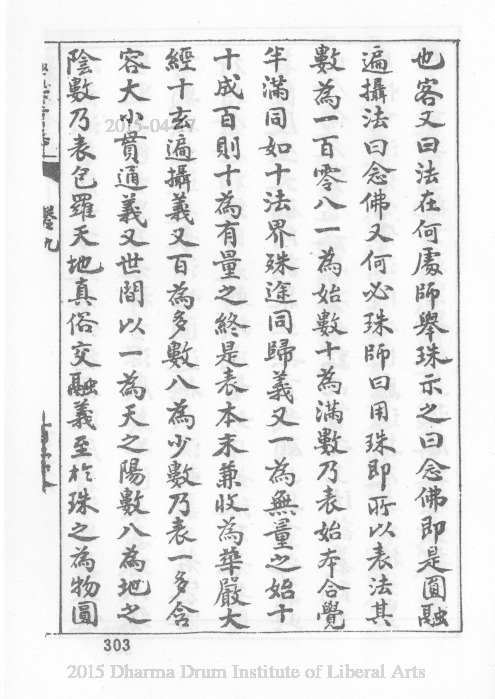 也客又曰法在何處師舉珠示之曰念佛即是圓融
遍攝法曰念佛又何必珠師曰用珠即所以表法其
數為一百零八一為始數十為滿數乃表始本合覺
半滿同如十法界殊途同歸義又一為無量之始十
十成百則十為有量之終是表本末兼收為華嚴大
經十玄遍攝義又百為多數八為少數乃表一多含
容大小貫通義又世間以一為天之陽數八為地之
陰數乃表包羅天地真俗交融義至於珠之為物圓
卷九
303
2015-04-17
2015 Dharma Drum Institute of Liberal Arts